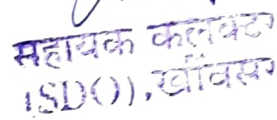 सहायक कलक्टर
(SDO), खींवसर